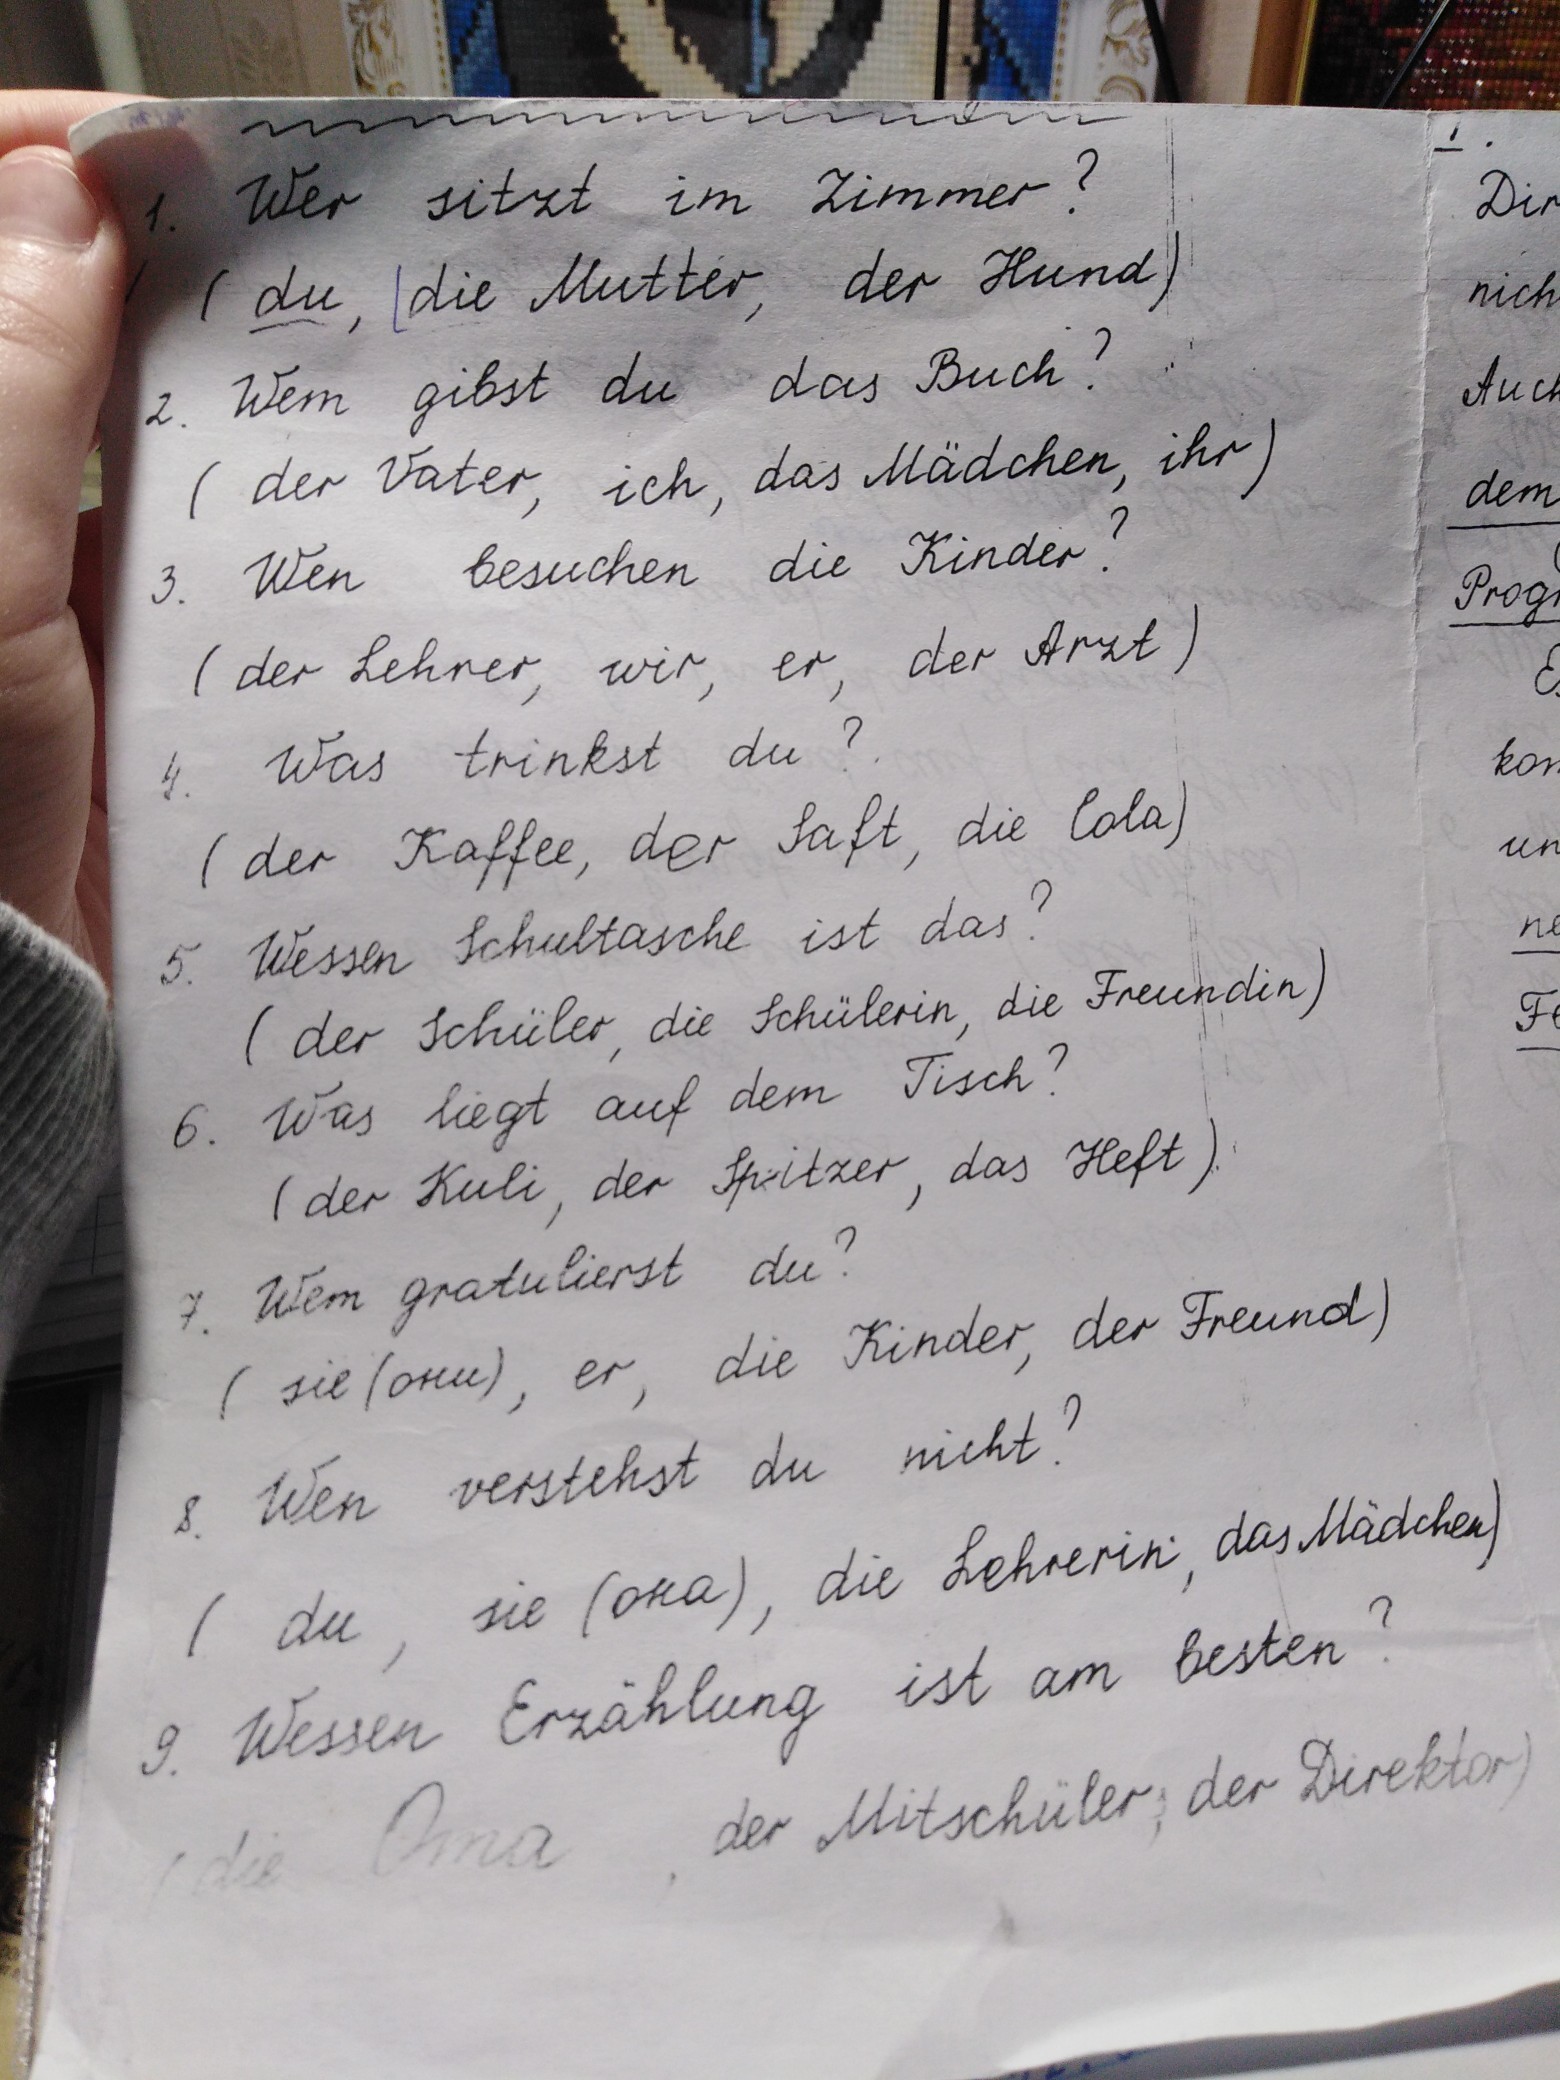 1. Wer sitzt im Zimmer?
( du, die Mutter, der Hund)
2. Wem gibst du das Buch?
( der Vater, ich, das Mädchen, ihr)
3. Wen besuchen die Kinder?
( der Lehrer, wir, er, der Arzt)
4. Was trinkst du?
( der Kaffee, der Saft, die Cola)
5. Wessen Schultasche ist das?
( der Schüler, die Schülerin, die Freundin)
6. Was liegt auf dem Tisch?
( der Kuli, der Spitzer, das Heft)
7. Wem gratulierst du?
( sie (они), er, die Kinder, der Freund)
8. Wen verstehst du nicht?
( du, sie (она), die Lehrerin, das Mädchen)
9. Wessen Erzählung ist am besten?
( die Oma, der Mitschüler, der Direktor)
1.
Dir
nich
Auch
dem
Progr
kom
un
ne